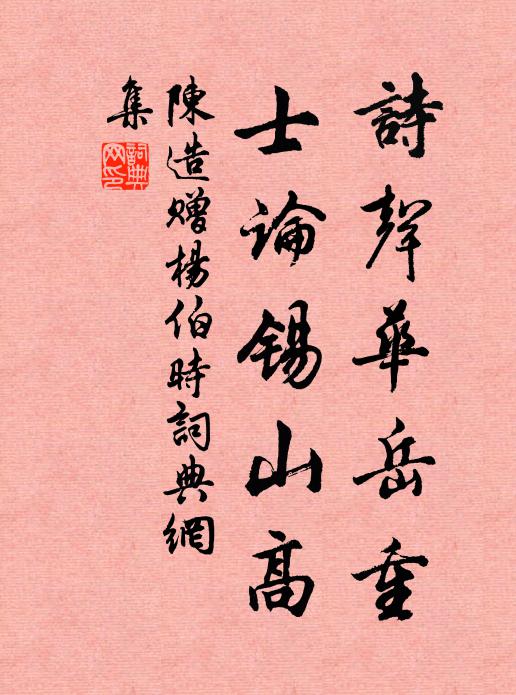 詩聲華岳重
士論錫山高
陳造贈楊伯時詞典網
集
詞典網印